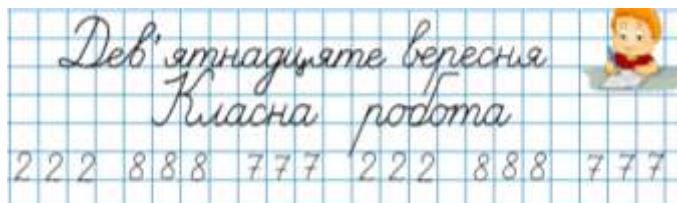 Дев'ятнадцяте вересня
Класна робота
222 888 777 222 888 777